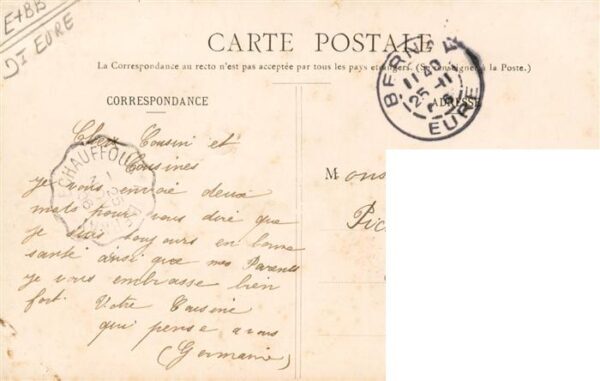 E+BB
Dt EURE
CARTE POSTALE
La Correspondance au recto n'est pas acceptée par tous les pays étrangers. (Se renseigner à la Poste.)
CORRESPONDANCE
ADRESSE
BERNAY
11 40
25 - 11
EURE
ECHAUFFOU
Cher Cousin et
Cousines
je vous envoie deux
mots pour vous dire que
je suis toujours en bonne
santé ainsi que mes Parents
je vous embrasse bien
fort. Votre Cousine
qui pense a vous
(Germaine)
Mons
Pic